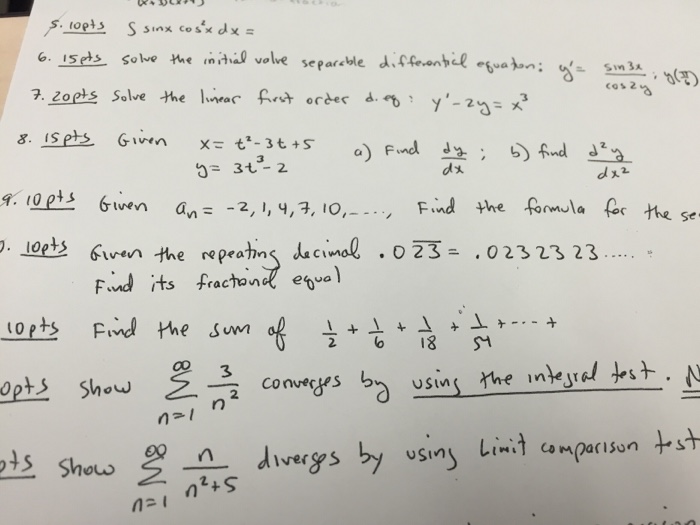 5. 10pts ∫ sinx cos²x dx =
6. 15pts Solve the initial valve separable differential equation: y' = sin3x / cos2y ; y(π/
7. 20pts Solve the linear first order d.eq : y' - 2y = x³
8. 15pts Given x = t² - 3t + 5 a) Find dy/dx ; b) find d²y/dx²
y = 3t³ - 2
9. 10pts Given aₙ = -2, 1, 4, 7, 10, -...., Find the formula for the se
0. 10pts Given the repeating decimal .0 2̅3̅ = .0232323.....
Find its fractional equal
10pts Find the sum of 1/2 + 1/6 + 1/18 + 1/54 + --- +
0pts Show ∞ Σ n=1 3/n² converges by using the integral test. N
pts Show ∞ Σ n=1 n/n²+5 diverges by using Limit comparison test